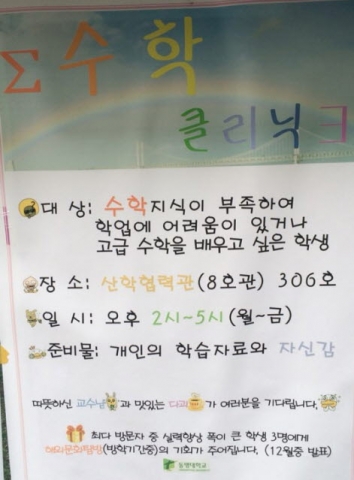 Σ 수학
클리닉 ヨ
대 상: 수학지식이 부족하여
학업에 어려움이 있거나
고급 수학을 배우고 싶은 학생
장 소: 산학협력관(8호관) 306호
일 시: 오후 2시~5시(월~금)
준비물: 개인의 학습자료와 자신감
따뜻하신 교수님과 맛있는 다과가 여러분을 기다립니다.
최다 방문자 중 실력향상 폭이 큰 학생 3명에게
해외문화탐방(방학기간중)의 기회가 주어집니다. (12월중 발표)
동명대학교